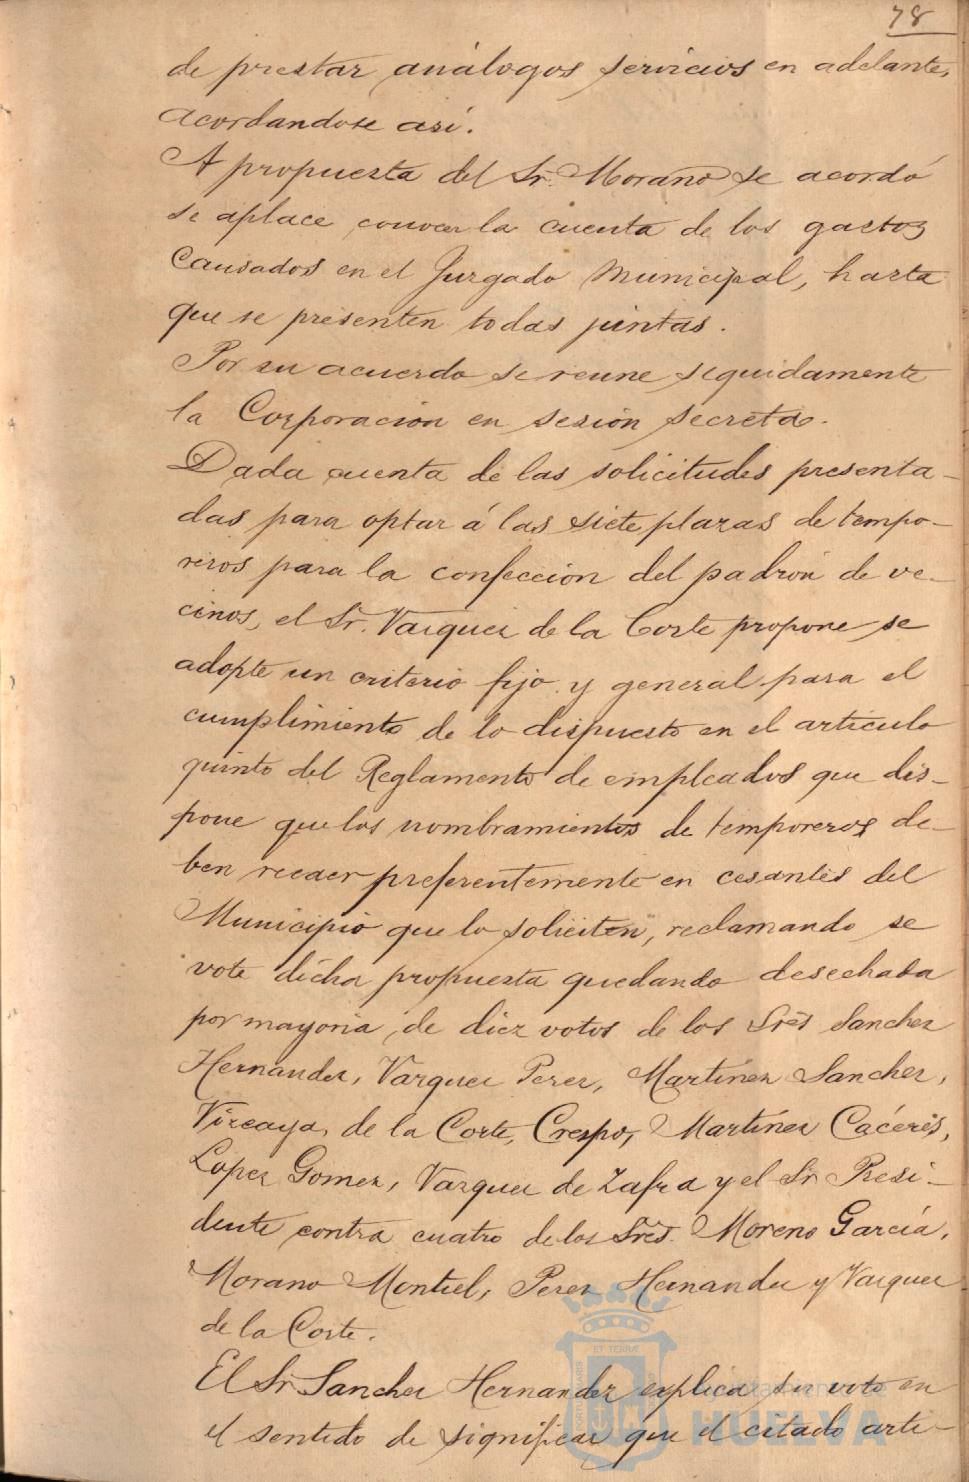 78
de prestar análogos servicios en adelante,
acordandose asi.
A propuesta del Sr. Morano se acordó
se aplace conocer la cuenta de los gastos
causados en el Juzgado Municipal, hasta
que se presenten todas juntas.
Por su acuerdo se reune seguidamente
la Corporacion en sesión secreta.
Dada cuenta de las solicitudes presenta-
das para optar á las siete plazas de tempo-
reros para la confección del padrón de ve-
cinos, el Sr. Vazquez de la Corte propone se
adopte un criterio fijo y general para el
cumplimiento de lo dispuesto en el articulo
quinto del Reglamento de empleados que dis-
pone que los nombramientos de temporeros de-
ben recaer preferentemente en cesantes del
Municipio que lo soliciten, reclamando se
vote dicha propuesta quedando desechada
por mayoria de diez votos de los Sres Sanchez
Hernandez, Vazquez Perez, Martinez Sanchez,
Vizcaya, de la Corte, Crespo, Martínez Cácéres,
Lopez Gomez, Vazquez de Zafra y el Sr Presi-
dente contra cuatro de los Sres. Moreno García,
Morano Montiel, Perez Hernandez y Vazquez
de la Corte.
El Sr Sanchez Hernandez explica su voto en
el sentido de significar que el citado arti-
ET TERRÆ
Ayuntamiento de
HUELVA